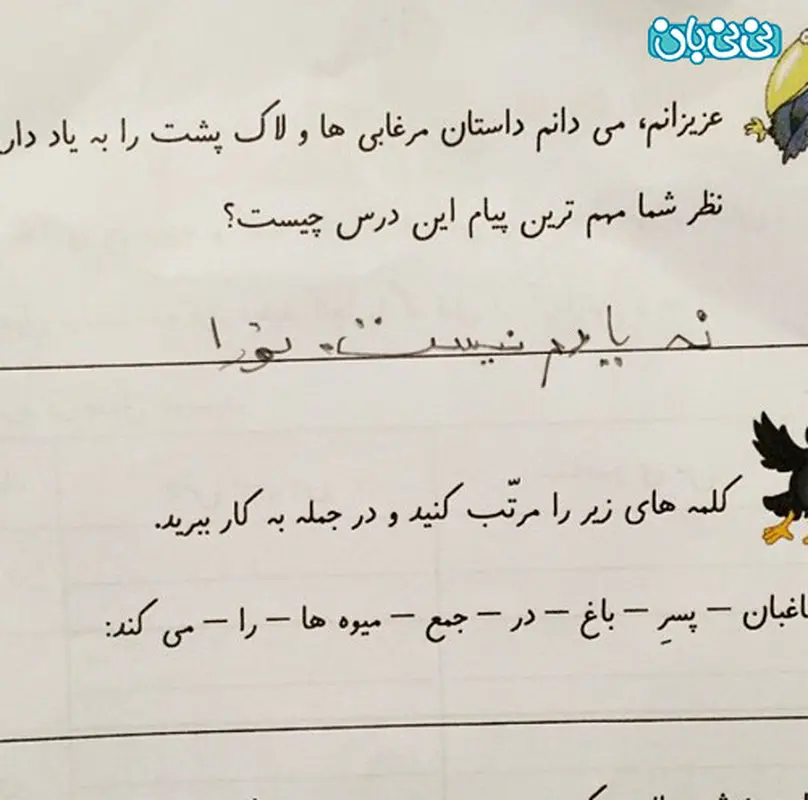 نی‌نی‌بان
عزیزانم، می دانم داستان مرغابی ها و لاک پشت را به یاد دار
نظر شما مهم ترین پیام این درس چیست؟
نه یادم نیست.
کلمه های زیر را مرتّب کنید و در جمله به کار ببرید.
اغبان – پسرِ – باغ – در – جمع – میوه ها – را – می کند: